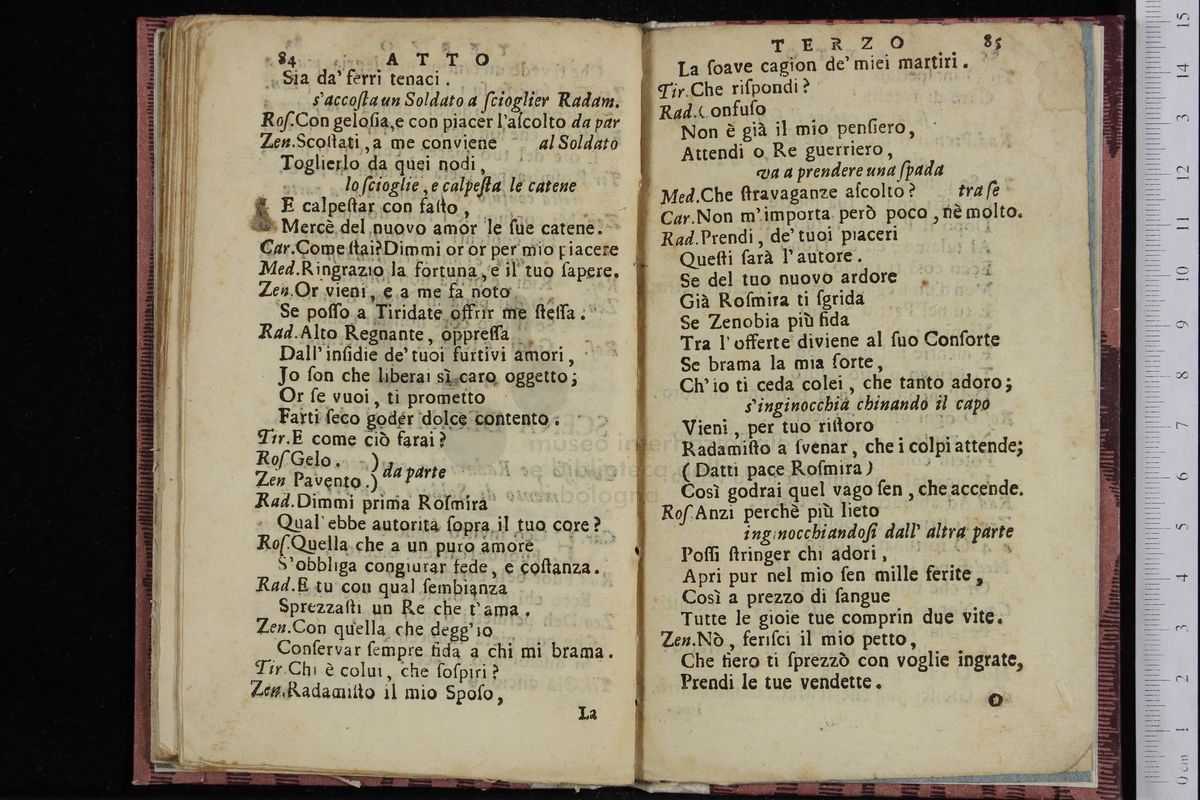 84 ATTO
Sia da' ferri tenaci.
s'accoſta un Soldato a ſcioglier Radam.
Roſ.Con geloſia, e con piacer l'aſcolto da par
Zen.Scoſtati, a me conviene al Soldato
Toglierlo da quei nodi,
lo ſcioglie, e calpeſta le catene
E calpeſtar con faſto,
Mercè del nuovo amor le ſue catene.
Car.Come ſtai? Dimmi or or per mio piacere
Med.Ringrazio la fortuna, e il tuo ſapere.
Zen.Or vieni, e a me fa noto
Se poſſo a Tiridate offrir me ſteſſa.
Rad.Alto Regnante, oppreſſa
Dall' inſidie de' tuoi furtivi amori,
Jo ſon che liberai sì caro oggetto;
Or ſe vuoi, ti prometto
Farti ſeco goder dolce contento.
Tir.E come ciò farai?
Roſ Gelo. )
Zen Pavento.) da parte
Rad.Dimmi prima Roſmira
Qual' ebbe autorità ſopra il tuo core?
Roſ.Quella che a un puro amore
S'obbliga congiurar fede, e coſtanza.
Rad.E tu con qual ſembianza
Sprezzaſti un Re che t'ama.
Zen.Con quella che degg'io
Conſervar ſempre fida a chi mi brama.
Tir Chi è colui, che ſoſpiri?
Zen.Radamiſto il mio Spoſo,
La
TERZO. 85
La ſoave cagion de' miei martiri.
Tir.Che riſpondi?
Rad.Confuſo
Non è già il mio penſiero,
Attendi o Re guerriero,
va a prendere una ſpada
Med.Che ſtravaganze aſcolto? tra ſe
Car.Non m'importa però poco, nè molto.
Rad.Prendi, de' tuoi piaceri
Queſti ſarà l'autore.
Se del tuo nuovo ardore
Già Roſmira ti ſgrida
Se Zenobia più fida
Tra l'offerte diviene al ſuo Conſorte
Se brama la mia ſorte,
Ch'io ti ceda colei, che tanto adoro;
s'inginocchia chinando il capo
Vieni, per tuo riſtoro
Radamiſto a ſvenar, che i colpi attende;
(Datti pace Roſmira)
Così godrai quel vago ſen, che accende.
Roſ Anzi perchè più lieto
inginocchiandoſi dall' altra parte
Poſſi ſtringer chi adori,
Apri pur nel mio ſen mille ferite,
Così a prezzo di ſangue
Tutte le gioie tue comprin due vite.
Zen.Nò, feriſci il mio petto,
Che fiero ti ſprezzò con voglie ingrate,
Prendi le tue vendette.
O